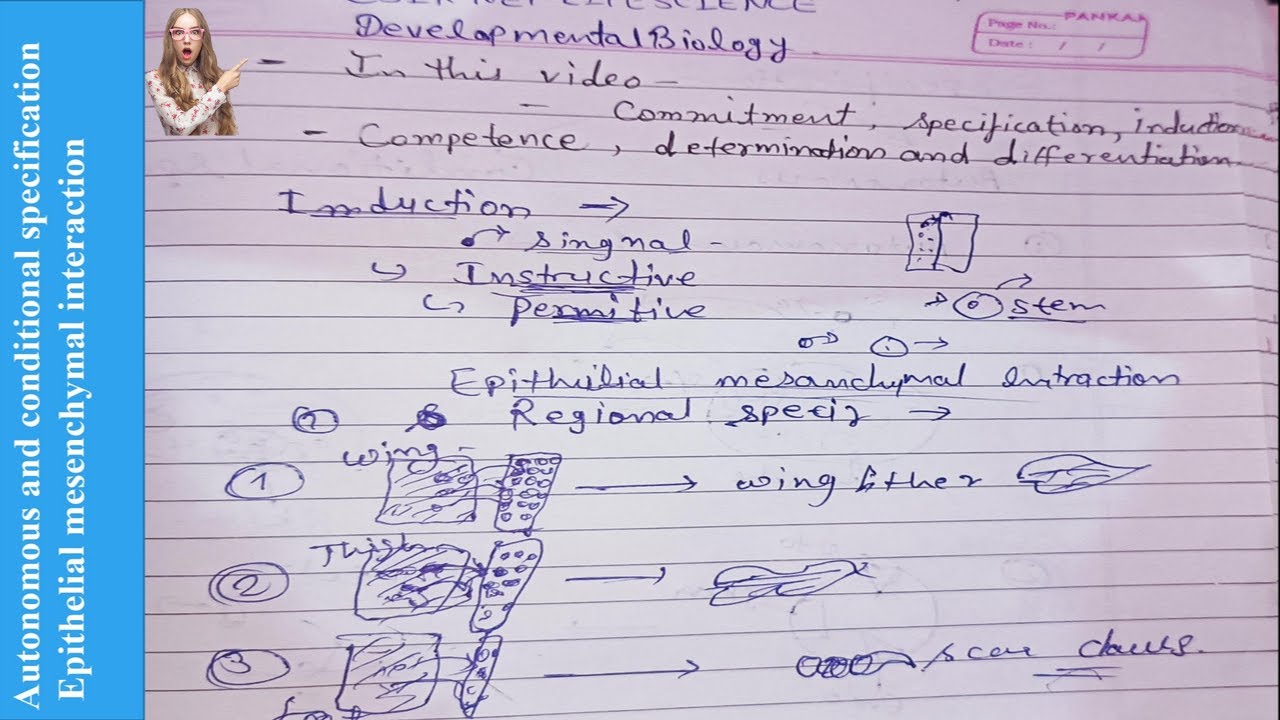 Autonomous and conditional specification
Epithelial mesenchymal interaction
PANKAJ
Page No.:
Date : / /
LIFESCIENCE
Developmental Biology
- In this video -
- Commitment, specification, induction
- Competence, determination and differentiation
Induction →
Singnal -
Instructive
Permitive
stem
Epithilial mesanchymal Intraction
Regional
wing -
1 → wing
2 →
3 → claws.